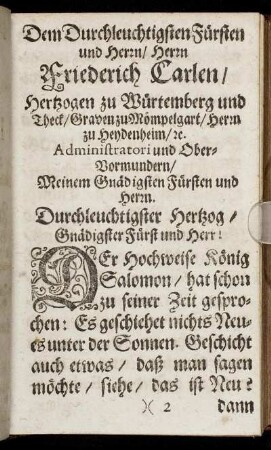 Dem Durchleuchtigsten Fürsten
und Herrn/ Herrn
Friederich Carlen/
Hertzogen zu Würtemberg und
Theck/ Graven zu Mömpelgart/ Herrn
zu Heydenheim/ ꝛc.
Administratori und Ober-
Vormundern/
Meinem Gnädigsten Fürsten und
Herrn.
Durchleuchtigster Hertzog/
Gnädigster Fürst und Herr!
DEr Hochweise König
Salomon/ hat schon
zu seiner Zeit gespro-
chen: Es geschiehet nichts Neu-
es unter der Sonnen. Geschicht
auch etwas/ daß man sagen
möchte/ siehe/ das ist Neu?
)( 2 dann